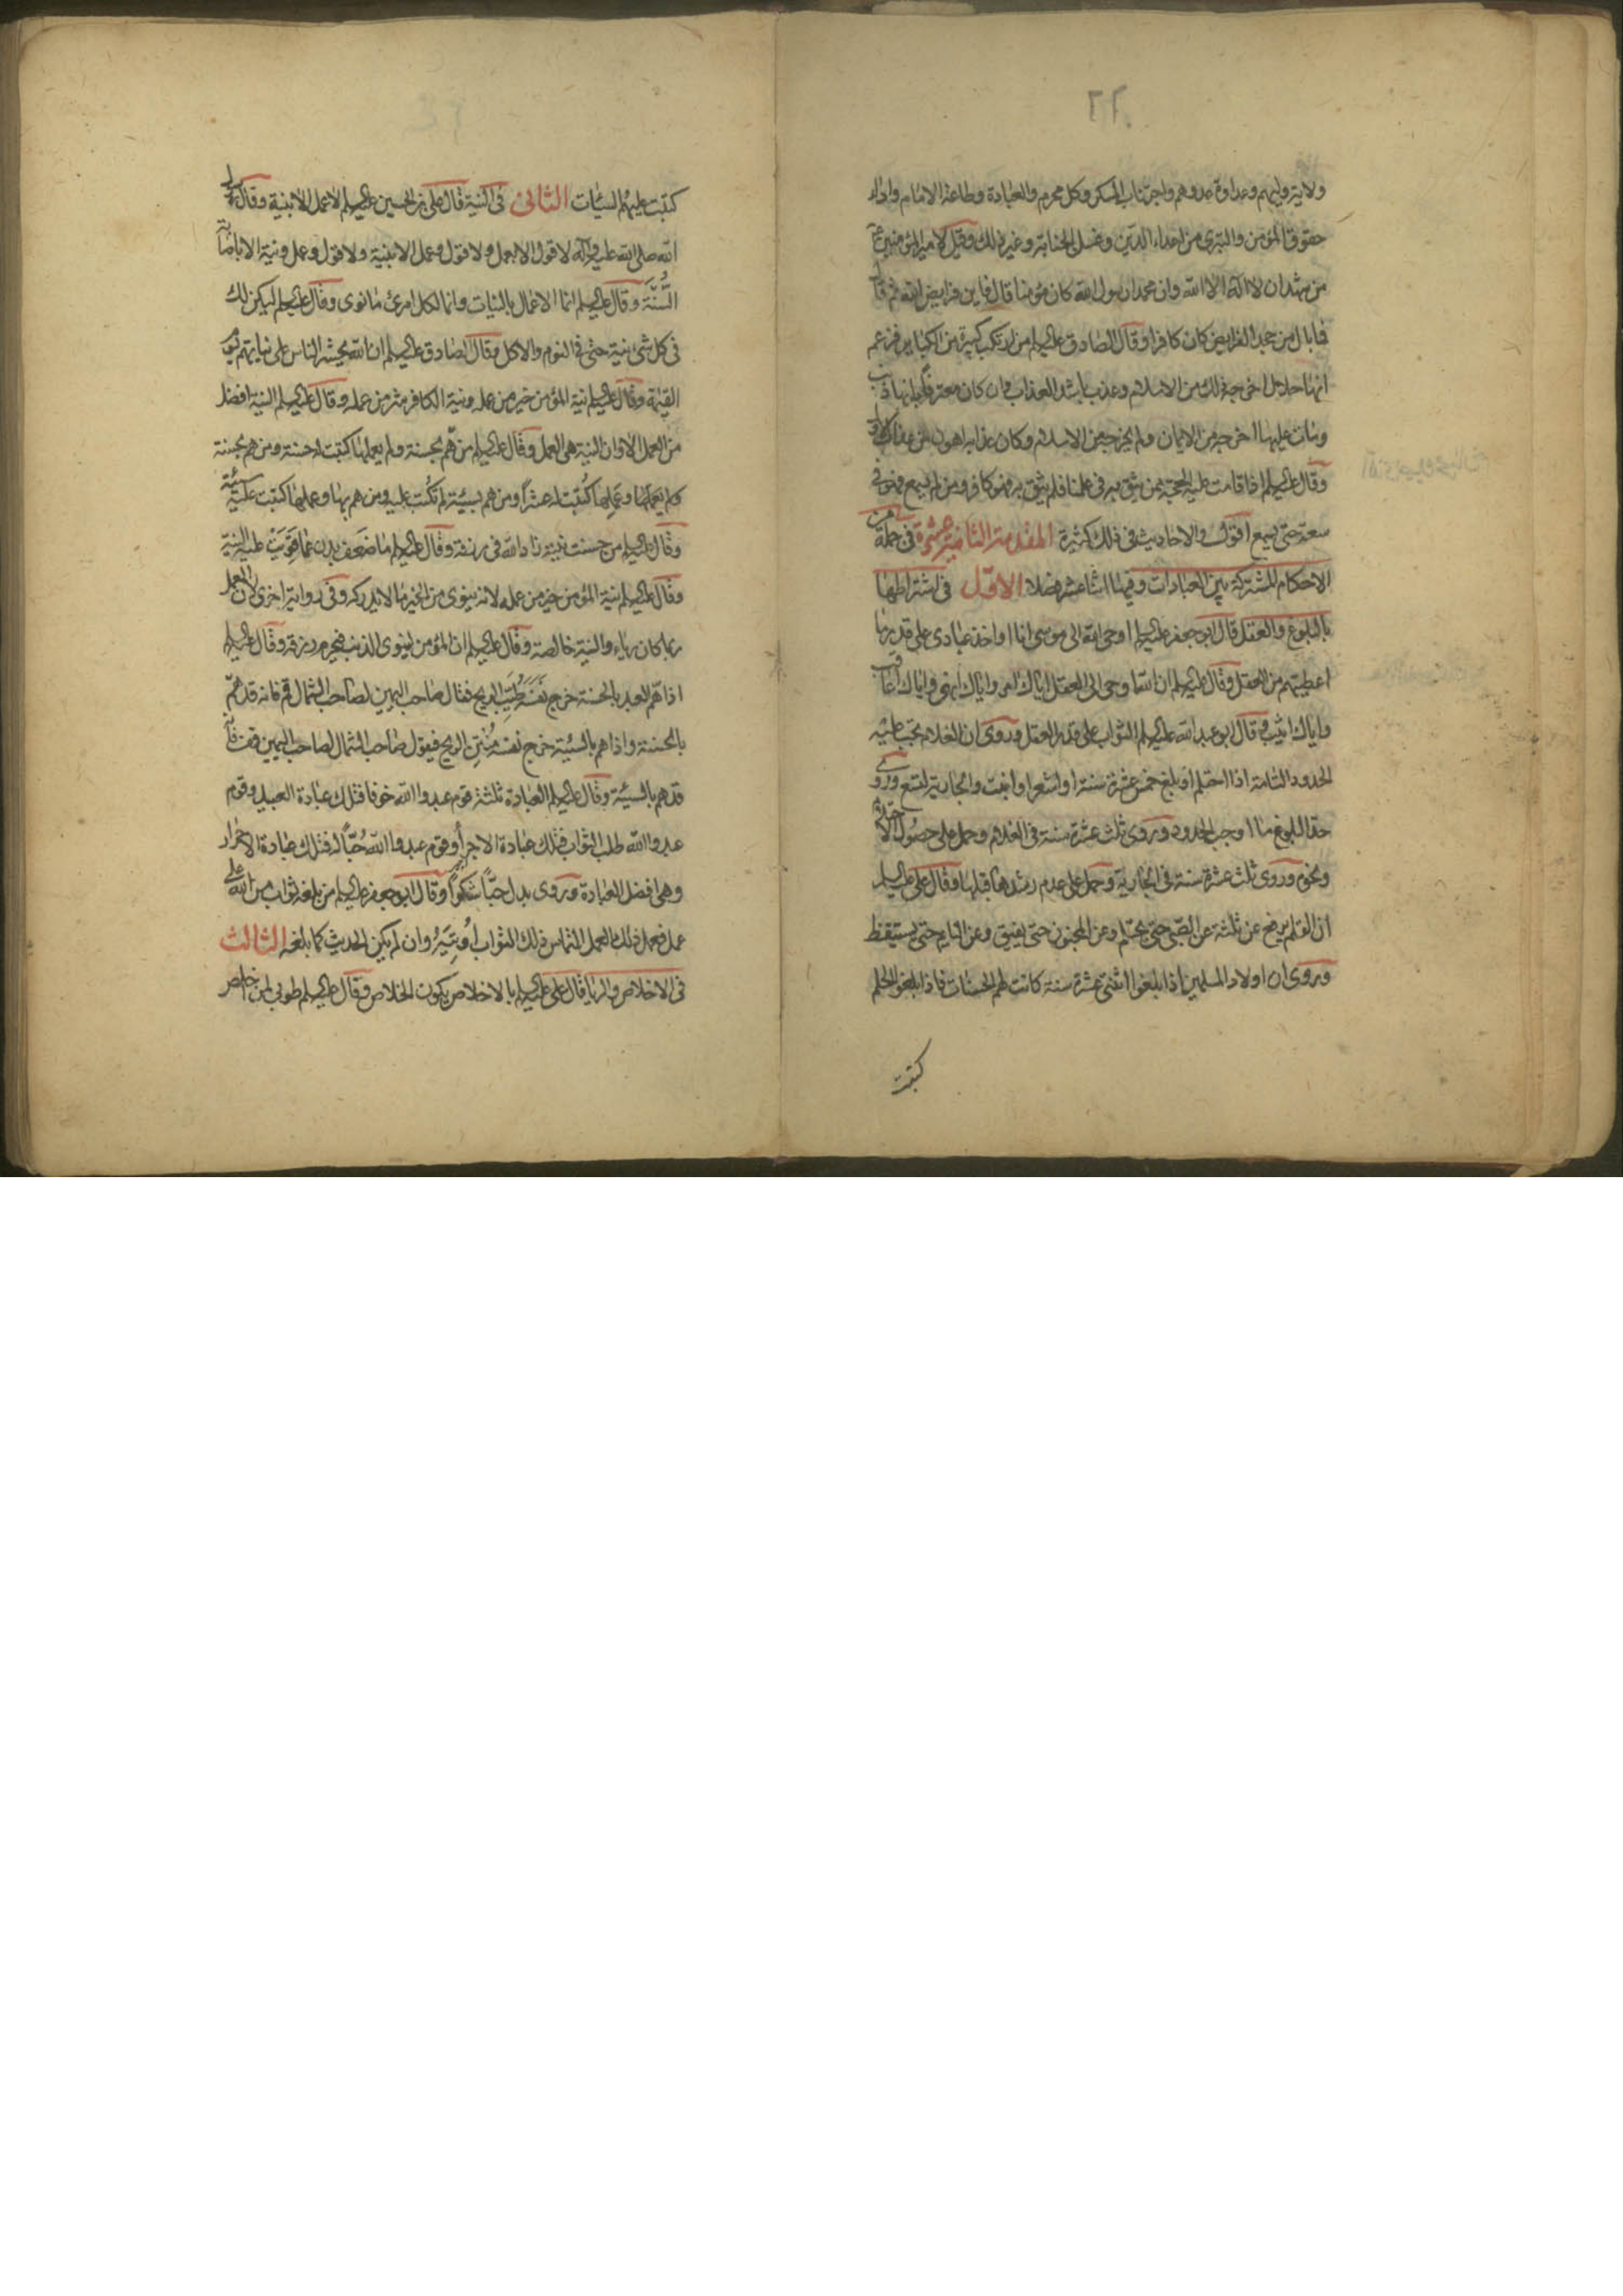 ولاية وليهم وعداوة عدوهم واجتناب المسكر وكل محرم والعبادة وطاعة الامام واداء
حقوق المؤمن والتبرى من اعداء الدين وغسل الجنابة وغير ذلك وقيل لامير المؤمنين ع
من شهد ان لا اله الا الله وان محمدا رسول الله كان مؤمنا قال فاين فرايض الله ثم قال
فما بال من جحد الفرايض كان كافرا وقال الصادق عليه السلم من ارتكب كبيرة من الكباير فزعم
انها حلال اخرجه ذلك من الاسلام وعذب باشد العذاب وان كان معترفا بانها ذنب
ومات عليها اخرجه من الايمان ولم يخرجه من الاسلام وكان عذابه اهون من عذاب الاول
وقال عليه السلم اذا قامت عليه الحجة ممن يثق به فى علمنا فلم يثق به فهو كافر ومن لم يسمع فهو فى
سعة حتى يسمع اقول والاحاديث فى ذلك كثيرة المقدمة الثانية عشرة فى جملة من
الاحكام المشتركة بين العبادات وفيها اثنا عشر فصلا الاول فى اشتراطها
بالبلوغ والعقل قال ابو جعفر عليه السلم اوحى الله الى موسى انا اواخذ عبادى على قدر ما
اعطيتهم من العقل وقال عليه السلم ان الله اوحى الى العقل اياك امر واياك انهى واياك اعاقب
واياك اثيب وقال ابو عبد الله عليه السلم الثواب على قدر العقل وروى ان الغلام تجب عليه
الحدود التامة اذا احتلم او بلغ خمس عشرة سنة او اشعر او انبت والجارية لتسع وروى
حد البلوغ ما اوجب الحدود وروى ثلث عشرة سنة فى الغلام وحمل على حصول الاحتلام
ونحوه وروى ثلث عشرة سنة فى الجارية وحمل على عدم رشدها قبلها وقال على عليه السلم
ان القلم يرفع عن ثلثة عن الصبى حتى يحتلم وعن المجنون حتى يفيق وعن النايم حتى يستيقظ
وروى ان اولاد المسلمين اذا بلغوا اثنتى عشرة سنة كانت لهم الحسنات فاذا بلغوا الحلم
كتبت
كتبت عليهم السيئات الثانى فى النية قال على بن الحسين عليه السلم لا عمل الا بنية وقال رسول
الله صلى الله عليه وآله لا قول الا بعمل ولا قول وعمل الا بنية ولا قول وعمل ونية الا باصابة
السنة وقال عليه السلم انما الاعمال بالنيات وانما لكل امرئ ما نوى وقال عليه السلم ليكن لك
فى كل شئ نية حتى فى النوم والاكل وقال الصادق عليه السلم ان الله يحشر الناس على نياتهم يوم
القيمة وقال عليه السلم نية المؤمن خير من عمله ونية الكافر شر من عمله وقال عليه السلم النية افضل
من العمل الا وان النية هى العمل وقال عليه السلم من هم بحسنة ولم يعملها كتبت له حسنة ومن هم بحسنة
وعملها كتبت له عشرا ومن هم بسيئة لم تكتب عليه ومن هم بها وعملها كتبت عليه سيئة
وقال عليه السلم من حسنت نيته زاد الله فى رزقه وقال عليه السلم ما ضعف بدن عما قويت عليه النية
وقال عليه السلم نية المؤمن خير من عمله لانه ينوى من الخير ما لا يدركه وفى رواية اخرى لان العمل
ربما كان رياء والنية خالصة وقال عليه السلم ان المؤمن لينوى الذنب فيحرم رزقه وقال عليه السلم
اذا هم العبد بالحسنة خرج نفسه طيب الريح فقال صاحب اليمين لصاحب الشمال قم فانه قد هم
بالحسنة واذا هم بالسيئة خرج نفسه منتن الريح فيقول صاحب الشمال لصاحب اليمين قف فانه
قد هم بالسيئة وقال عليه السلم العبادة ثلثة قوم عبدوا الله خوفا فتلك عبادة العبيد وقوم
عبدوا الله طلب الثواب فتلك عبادة الاجراء وقوم عبدوا الله حبا له فتلك عبادة الاحرار
وهى افضل العبادة وروى بدل حبا شكرا وقال ابو جعفر عليه السلم من بلغه ثواب من الله على
عمل فعمل ذلك العمل التماس ذلك الثواب اوتيه وان لم يكن الحديث كما بلغه الثالث
فى الاخلاص والريا قال على عليه السلم بالاخلاص يكون الخلاص وقال عليه السلم طوبى لمن اخلص